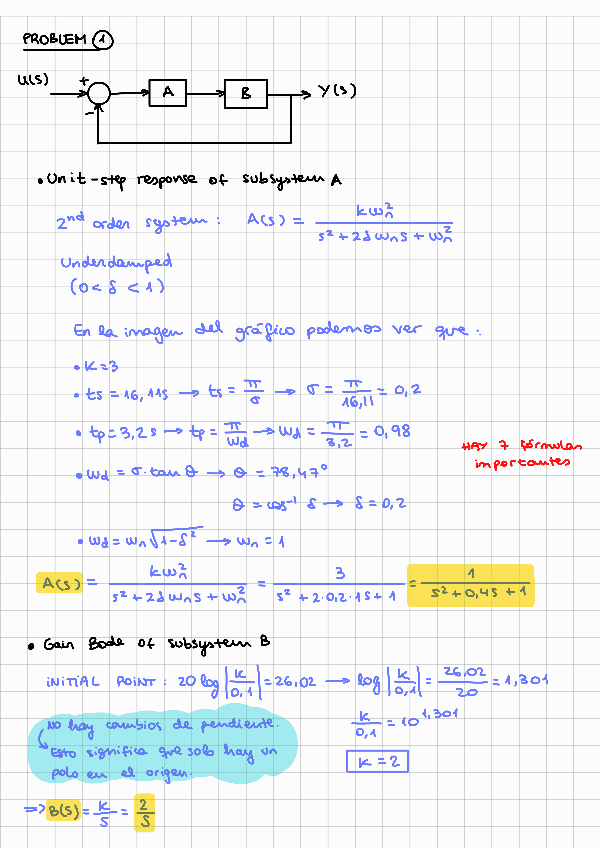 PROBLEM 1
U(s) + − A B Y(s)
• Unit-step response of subsystem A
2nd order system: A(s) = kωn² / (s² + 2δωns + ωn²)
Underdamped
(0 < δ < 1)
En la imagen del gráfico podemos ver que:
• K = 3
• ts = 16,11s → ts = π/σ → σ = π/16,11 = 0,2
• tp = 3,2s → tp = π/ωd → ωd = π/3,2 = 0,98
HAY 7 fórmulas
importantes
• ωd = σ·tan θ → θ = 78,47°
θ = cos⁻¹ δ → δ = 0,2
• ωd = ωn√(1-δ²) → ωn = 1
A(s) = kωn² / (s² + 2δωns + ωn²) = 3 / (s² + 2·0,2·1s + 1) = 1 / (s² + 0,4s + 1)
• Gain Bode of subsystem B
INITIAL POINT: 20 log|K/0,1| = 26,02 → log|K/0,1| = 26,02/20 = 1,301
No hay cambios de pendiente.
K/0,1 = 10^1,301
Esto significa que solo hay un
polo en el origen.
K = 2
=> B(s) = K/s = 2/s